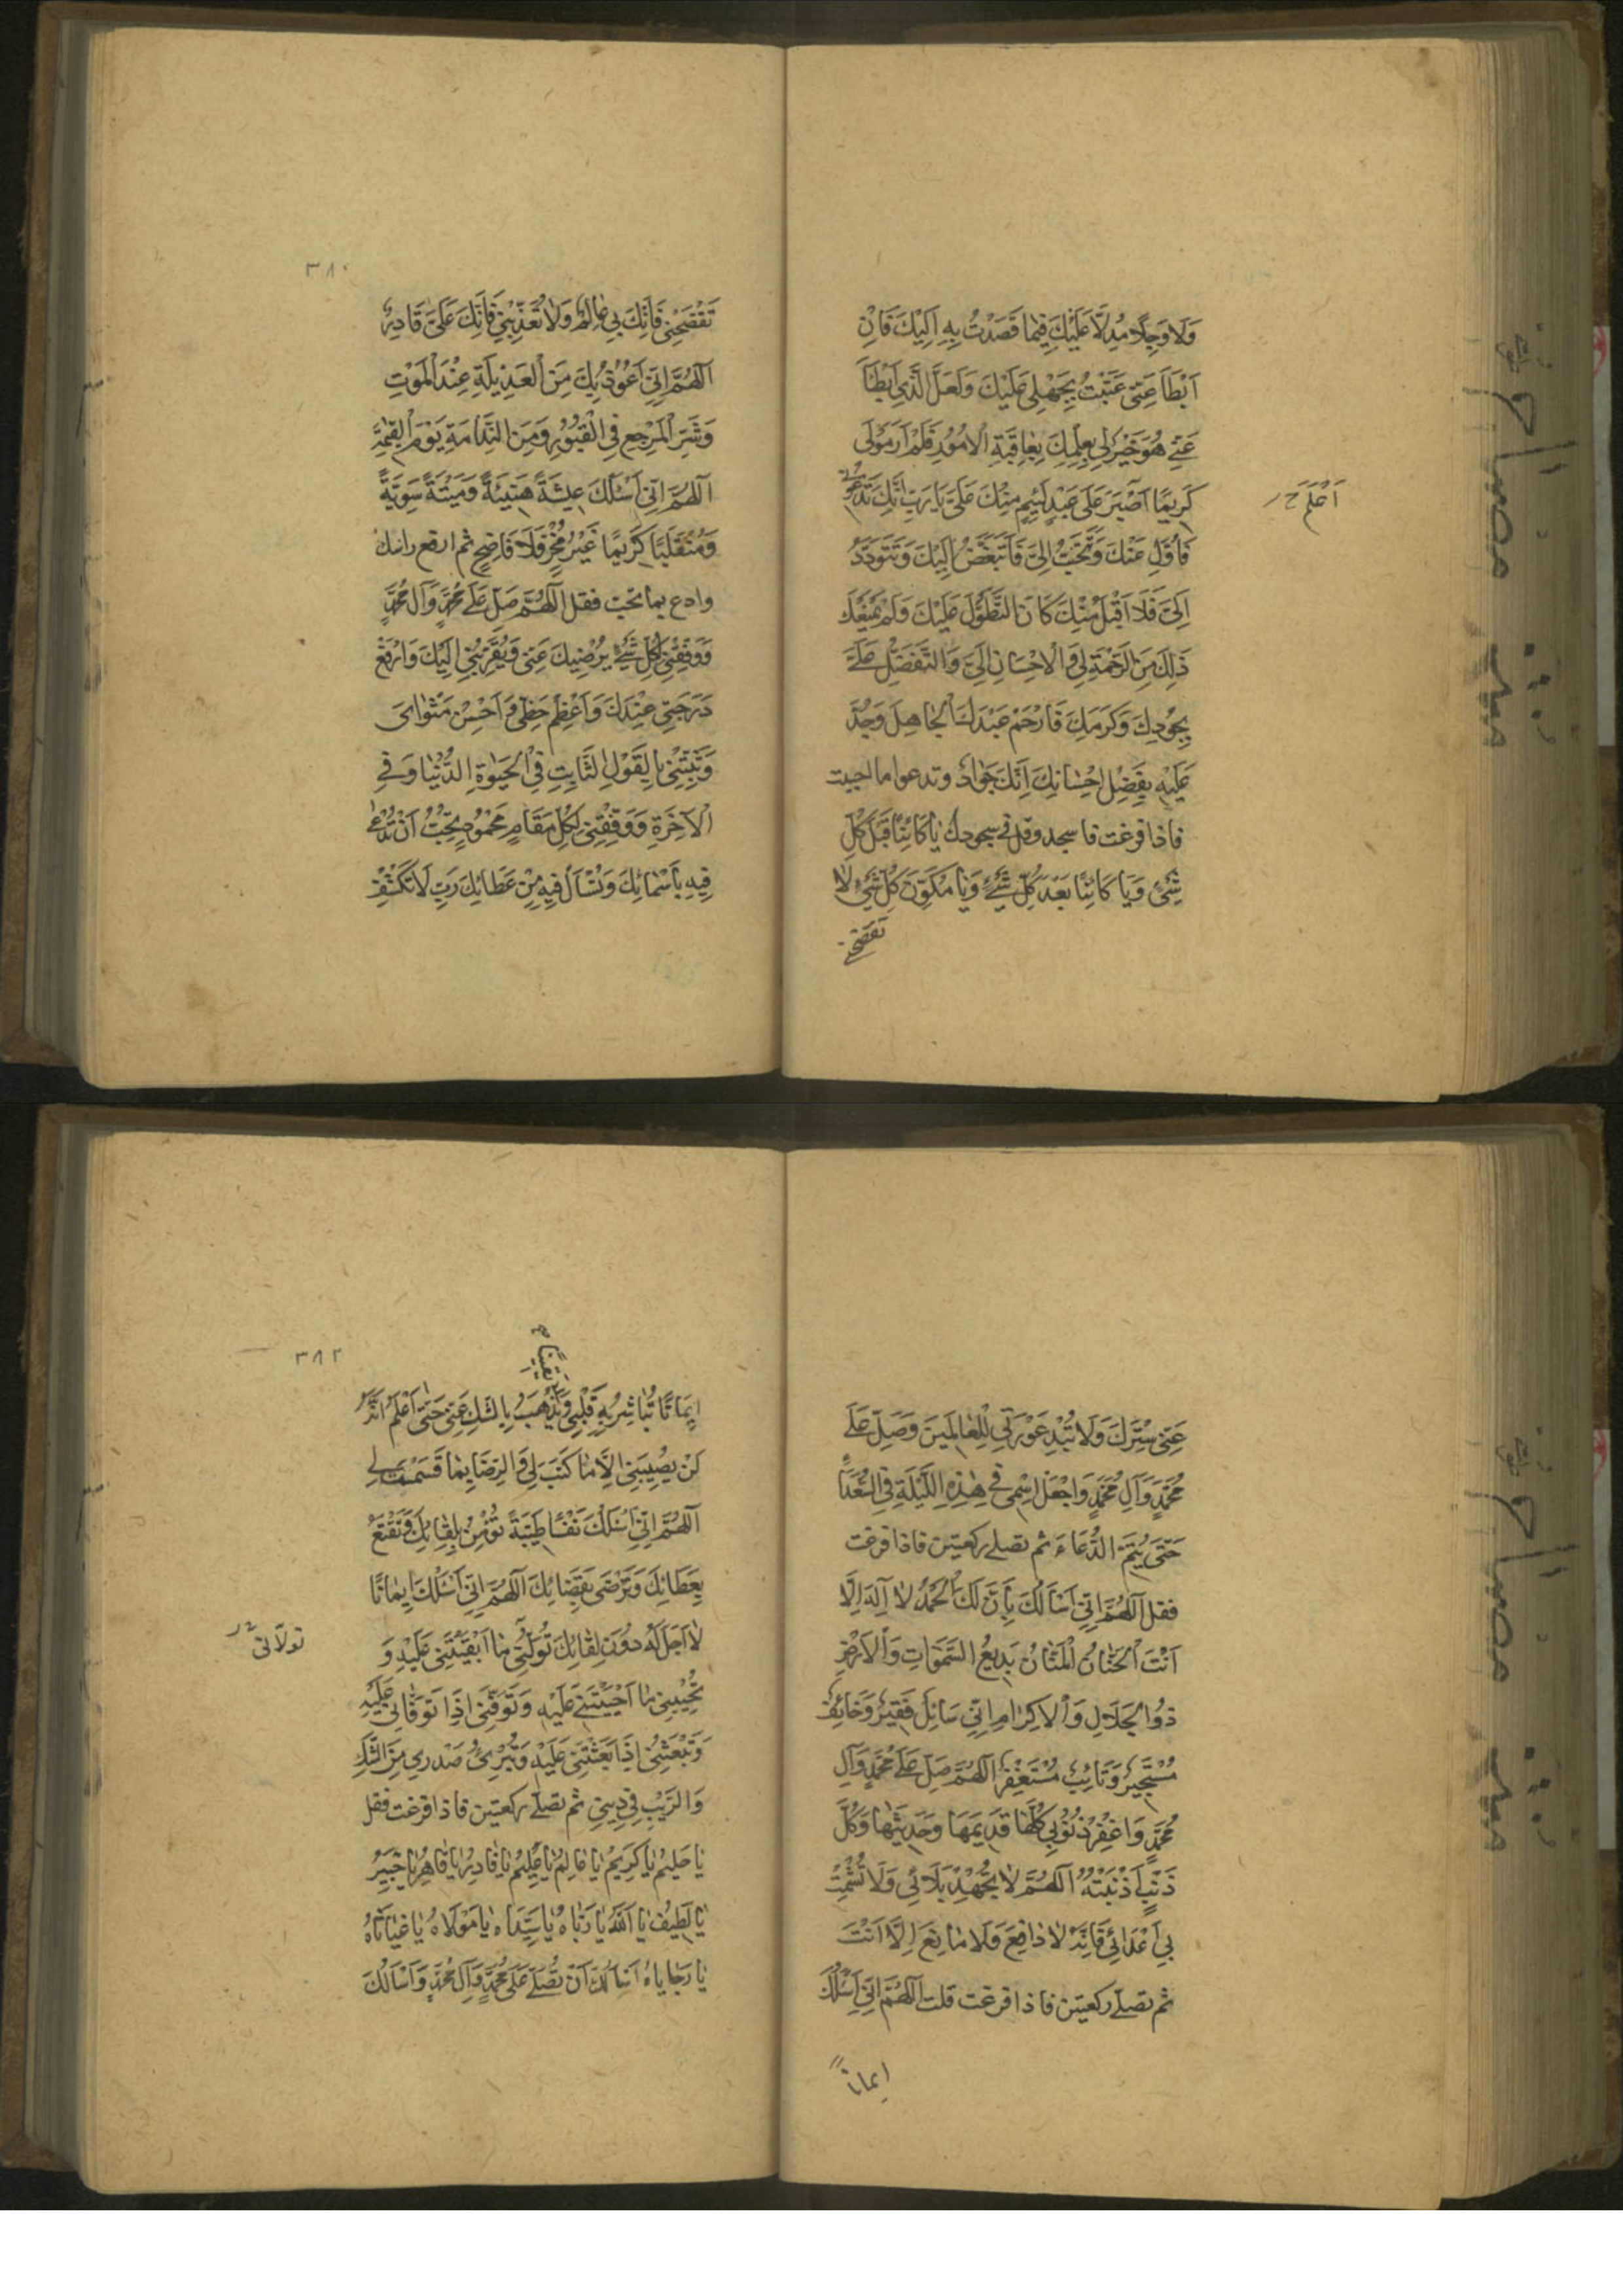 وَلَا وَجِلًا مُدِلًّا عَلَيْكَ فِيمَا قَصَدْتُ بِهِ اِلَيْكَ فَاِنْ
اَبْطَاَ عَنّى عَتَبْتُ بِجَهْلِي عَلَيْكَ وَلَعَلَّ الَّذِي اَبْطَاَ
عَنّى هُوَ خَيْرٌ لِي بِعِلْمِكَ بِعَاقِبَةِ الْاُمُورِ فَلَمْ اَرَ مَوْلًى
كَرِيمًا اَصْبَرَ عَلَى عَبْدٍ لَئِيمٍ مِنْكَ عَلَيَّ يَا رَبِّ اِنَّكَ تَدْعُونِي
اَعْلَمَ ح
فَاُوَلِّي عَنْكَ وَتَتَحَبَّبُ اِلَيَّ فَاَتَبَغَّضُ اِلَيْكَ وَتَتَوَدَّدُ
اِلَيَّ فَلَا اَقْبَلُ مِنْكَ كَاَنَّ التَّطَوُّلَ عَلَيْكَ وَلَمْ يَمْنَعْكَ
ذَلِكَ مِنَ الرَّحْمَةِ لِي وَالْاِحْسَانِ اِلَيَّ وَالتَّفَضُّلِ عَلَيَّ
بِجُودِكَ وَكَرَمِكَ فَارْحَمْ عَبْدَكَ الْجَاهِلَ وَجُدْ
عَلَيْهِ بِفَضْلِ اِحْسَانِكَ اِنَّكَ جَوَادٌ وتدعوا ما احببت
فاذا فرغت فاسجد وقل في سجودك يَا كَائِنًا قَبْلَ كُلِّ
شَيْءٍ وَيَا كَائِنًا بَعْدَ كُلِّ شَيْءٍ وَيَا مُكَوِّنَ كُلِّ شَيْءٍ لَا
تفضحنى
٣٨٠
تَفْضَحْنِي فَاِنَّكَ بِي عَالِمٌ وَلَا تُعَذِّبْنِي فَاِنَّكَ عَلَيَّ قَادِرٌ
اَللّهُمَّ اِنِّي اَعُوذُ بِكَ مِنَ الْعَدِيلَةِ عِنْدَ الْمَوْتِ
وَشَرِّ الْمَرْجِعِ فِي الْقُبُورِ وَمِنَ النَّدَامَةِ يَوْمَ الْقِيمَةِ
اَللّهُمَّ اِنِّي اَسْئَلُكَ عِيشَةً هَنِيئَةً وَمِيتَةً سَوِيَّةً
وَمُنْقَلَبًا كَرِيمًا غَيْرَ مُخْزٍ وَلَا فَاضِحٍ ثم ارفع راسك
وادع بما تحب فقل اَللّهُمَّ صَلِّ عَلَى مُحَمَّدٍ وَآلِ مُحَمَّدٍ
وَوَفِّقْنِي لِكُلِّ شَيْءٍ يُرْضِيكَ عَنّى وَيُقَرِّبُنِي اِلَيْكَ وَارْفَعْ
دَرَجَتِي عِنْدَكَ وَاَعْظِمْ حَظِّي وَاَحْسِنْ مَثْوَايَ
وَثَبِّتْنِي بِالْقَوْلِ الثَّابِتِ فِي الْحَيوةِ الدُّنْيَا وَفِي
الْآخِرَةِ وَوَفِّقْنِي لِكُلِّ مَقَامٍ مَحْمُودٍ تُحِبُّ اَنْ تُدْعَى
فِيهِ بِاَسْمَائِكَ وَتُسْاَلُ فِيهِ مِنْ عَطَائِكَ رَبِّ لَا تَكْشِفْ
عَنّى سِتْرَكَ وَلَا تُبْدِ عَوْرَتِي لِلْعَالَمِينَ وَصَلِّ عَلَى
مُحَمَّدٍ وَآلِ مُحَمَّدٍ وَاجْعَلْ اسْمِي فِي هَذِهِ اللَّيْلَةِ فِي السُّعَدَاءِ
حَتَّى يُتِمَّ الدُّعَاءَ ثم تصلى ركعتين فاذا فرغت
فقل اَللّهُمَّ اِنِّي اَسْاَلُكَ بِاَنَّ لَكَ الْحَمْدَ لَا اِلهَ اِلَّا
اَنْتَ الْحَنَّانُ الْمَنَّانُ بَدِيعُ السَّموَاتِ وَالْاَرْضِ
ذُو الْجَلَالِ وَالْاِكْرَامِ اِنِّي سَائِلٌ فَقِيرٌ وَخَائِفٌ
مُسْتَجِيرٌ وَتَائِبٌ مُسْتَغْفِرٌ اَللّهُمَّ صَلِّ عَلَى مُحَمَّدٍ وَآلِ
مُحَمَّدٍ وَاغْفِرْ ذُنُوبِي كُلَّهَا قَدِيمَهَا وَحَدِيثَهَا وَكُلَّ
ذَنْبٍ اَذْنَبْتُهُ اَللّهُمَّ لَا تُجْهِدْ بَلَائِي وَلَا تُشْمِتْ
بِي اَعْدَائِي فَاِنَّهُ لَا دَافِعَ وَلَا مَانِعَ اِلَّا اَنْتَ
ثم تصلى ركعتين فاذا فرغت قلت اَللّهُمَّ اِنِّي اَسْئَلُكَ
ايمانا
٣٨٢
يقينا
اِيمَانًا تُبَاشِرُ بِهِ قَلْبِي وَتَذْهَبُ بِالشَّكِّ عَنّى حَتَّى اَعْلَمُ اَنَّهُ
لَنْ يُصِيبَنِي اِلَّا مَا كَتَبَ لِي وَالرِّضَا بِمَا قَسَمْتَ لِي
اَللّهُمَّ اِنِّي اَسْئَلُكَ نَفْسًا طَيِّبَةً تُؤْمِنُ بِلِقَائِكَ وَتَقْنَعُ
بِعَطَائِكَ وَتَرْضَى بِقَضَائِكَ اَللّهُمَّ اِنِّي اَسْئَلُكَ اِيمَانًا
لَا اَجَلَ لَهُ دُونَ لِقَائِكَ تُوَلِّنِي مَا اَبْقَيْتَنِي عَلَيْهِ وَ
تولانى
تُحْيِينِي مَا اَحْيَيْتَنِي عَلَيْهِ وَتَوَفَّنِي اِذَا تَوَفَّانِي عَلَيْهِ
وَتَبْعَثُنِي اِذَا بَعَثْتَنِي عَلَيْهِ وَتُبْرِئُ صَدْرِي مِنَ الشَّكِّ
وَالرَّيْبِ فِي دِينِي ثم تصلى ركعتين فاذا فرغت فقل
يَا حَلِيمُ يَا كَرِيمُ يَا عَالِمُ يَا عَلِيمُ يَا قَادِرُ يَا قَاهِرُ يَا خَبِيرُ
يَا لَطِيفُ يَا اَللهُ يَا رَبَّاهُ يَا سَيِّدَاهُ يَا مَوْلَاهُ يَا غِيَاثَاهُ
يَا رَجَايَاهُ اَسْاَلُكَ اَنْ تُصَلِّيَ عَلَى مُحَمَّدٍ وَآلِ مُحَمَّدٍ وَاَسْاَلُكَ